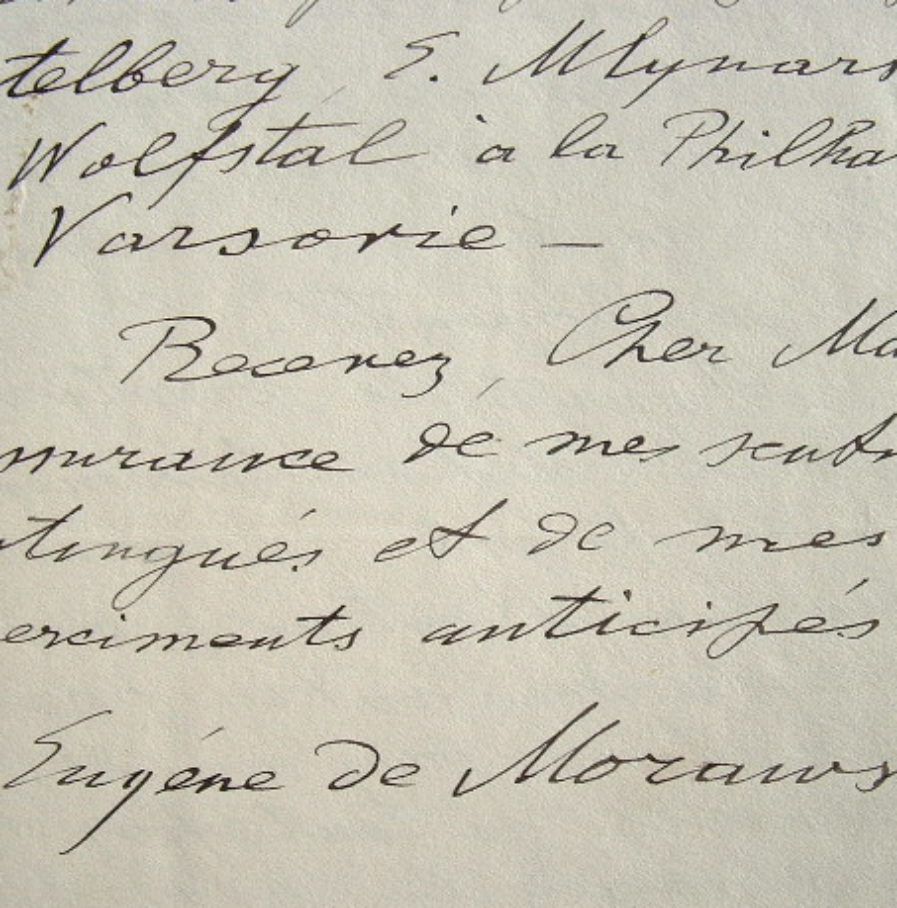 telberg, E. Mlynars
Wolfstal à la Philha
Varsovie —
Recevez, Cher Ma
ssurance de mes senti
stingués et de mes
erciments anticipés
Eugéne de Moraws